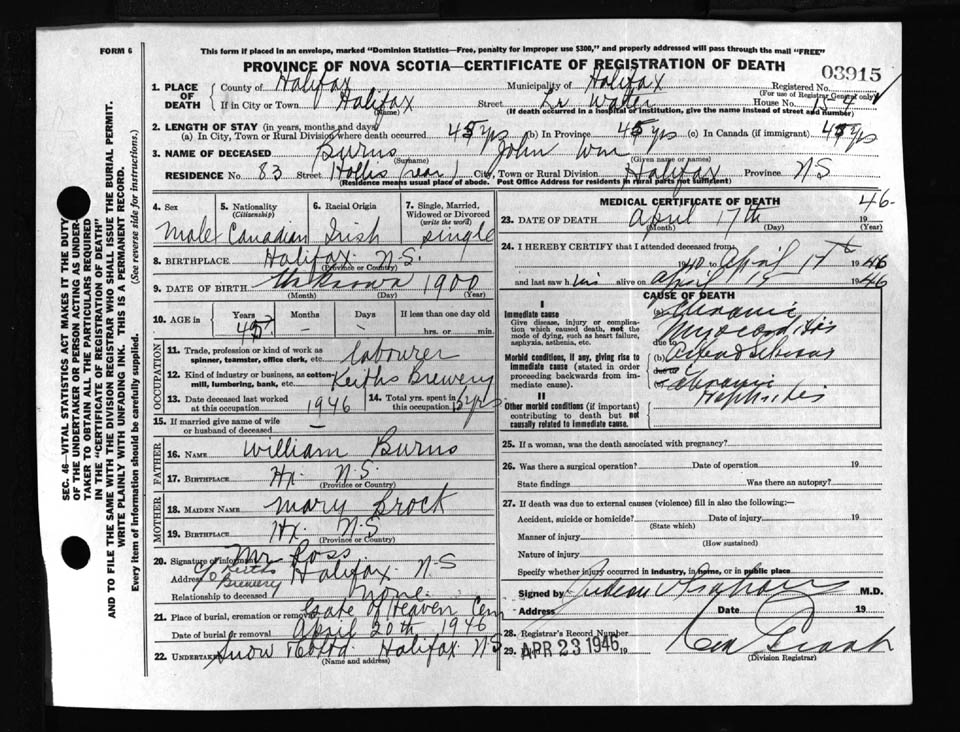 FORM 6
This form if placed in an envelope, marked "Dominion Statistics—Free, penalty for improper use $300," and properly addressed will pass through the mail "FREE"
PROVINCE OF NOVA SCOTIA—CERTIFICATE OF REGISTRATION OF DEATH
03915
1. PLACE OF DEATH
County of Halifax Municipality of Halifax Registered No.
(For use of Registrar General only)
If in City or Town Halifax Street Lr Water House No.
(Name) (If death occurred in a hospital or institution, give the name instead of street and number)
2. LENGTH OF STAY (in years, months and days)
(a) In City, Town or Rural Division where death occurred 45 yrs (b) In Province 45 yrs (c) In Canada (if immigrant) 45 yrs
3. NAME OF DECEASED Burns John Wm
(Surname) (Given name or names)
RESIDENCE No. 83 Street Hollis (rear) City, Town or Rural Division Halifax Province N.S
(Residence means usual place of abode. Post Office Address for residents in rural parts not sufficient)
4. Sex Male
5. Nationality (Citizenship) Canadian
6. Racial Origin Irish
7. Single, Married, Widowed or Divorced (write the word) Single
8. BIRTHPLACE Halifax N.S.
(Province or Country)
9. DATE OF BIRTH Unknown 1900
(Month) (Day) (Year)
10. AGE in Years Months Days If less than one day old
45 ? – – hrs. or min.
OCCUPATION
11. Trade, profession or kind of work as spinner, teamster, office clerk, etc. labourer
12. Kind of industry or business, as cotton-mill, lumbering, bank, etc. Keiths Brewery
13. Date deceased last worked at this occupation 1946
14. Total yrs. spent in this occupation yrs
15. If married give name of wife or husband of deceased —
FATHER
16. NAME William Burns
17. BIRTHPLACE Hx. N.S.
(Province or Country)
MOTHER
18. MAIDEN NAME Mary Brock
19. BIRTHPLACE Hx. N.S
(Province or Country)
20. Signature of informant Mr. Ross
Address c/o Keiths Brewery Halifax N-S
Relationship to deceased None.
21. Place of burial, cremation or removal Gate of Heaven Cem
Date of burial or removal April 20th 1946
22. UNDERTAKER Snow & Co Ltd. Halifax N.S
(Name and address)
MEDICAL CERTIFICATE OF DEATH
23. DATE OF DEATH April 17th 46-
(Month) (Day) (Year)
24. I HEREBY CERTIFY that I attended deceased from
1940 to April 17th 1946
and last saw h him alive on April 19 1946
CAUSE OF DEATH
I
Immediate cause
Give disease, injury or complication which caused death, not the mode of dying, such as heart failure, asphyxia, asthenia, etc.
(a) Chronic Myocarditis
due to
Morbid conditions, if any, giving rise to immediate cause (stated in order proceeding backwards from immediate cause)
(b)
due to
(c) Chronic Nephritis
II
Other morbid conditions (if important) contributing to death but not causally related to immediate cause.
25. If a woman, was the death associated with pregnancy?
26. Was there a surgical operation? Date of operation 19
State findings Was there an autopsy?
27. If death was due to external causes (violence) fill in also the following:—
Accident, suicide or homicide? Date of injury 19
(State which)
Manner of injury
(How sustained)
Nature of injury
Specify whether injury occurred in industry, in home, or in public place
Signed by M.D.
Address Date 19
28. Registrar's Record Number
29. APR 23 1946 19
(Division Registrar)
SEC. 46—VITAL STATISTICS ACT MAKES IT THE DUTY
OF THE UNDERTAKER OR PERSON ACTING AS UNDER-
TAKER TO OBTAIN ALL THE PARTICULARS REQUIRED
IN THE "CERTIFICATE OF REGISTRATION OF DEATH"
AND TO FILE THE SAME WITH THE DIVISION REGISTRAR WHO SHALL ISSUE THE BURIAL PERMIT.
WRITE PLAINLY WITH UNFADING INK. THIS IS A PERMANENT RECORD.
Every item of information should be carefully supplied. (See reverse side for instructions.)